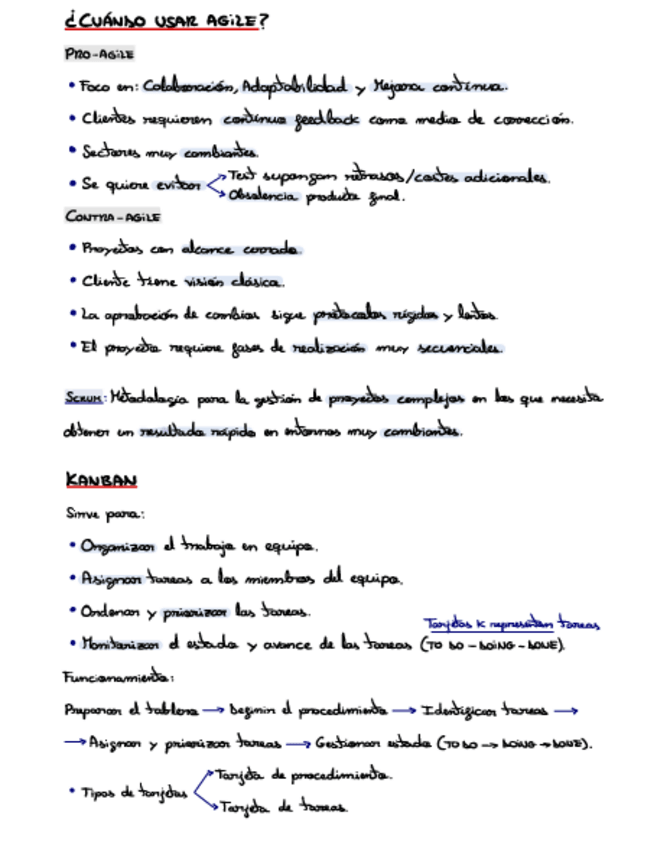 ¿CUÁNDO USAR AGILE?
PRO-AGILE
• Foco en: Colaboración, Adaptabilidad y Mejora continua.
• Clientes requieren continuo feedback como medio de corrección.
• Sectores muy cambiantes.
• Se quiere evitar → Test supongan retrasos/costes adicionales.
→ Obsolencia producto final.
CONTRA-AGILE
• Proyectos con alcance cerrado.
• Cliente tiene visión clásica.
• La aprobación de cambios sigue protocolos rígidos y lentos.
• El proyecto requiere fases de realización muy secuenciales.
SCRUM: Metodología para la gestión de proyectos complejos en los que necesita
obtener un resultado rápido en entornos muy cambiantes.
KANBAN
Sirve para:
• Organizar el trabajo en equipo.
• Asignar tareas a los miembros del equipo.
• Ordenar y priorizar las tareas.
Tarjetas k representan tareas
• Monitorizar el estado y avance de las tareas (TO DO - DOING - DONE).
Funcionamiento:
Preparar el tablero → Definir el procedimiento → Identificar tareas →
→ Asignar y priorizar tareas → Gestionar estado (TO DO → DOING → DONE).
• Tipos de tarjetas → Tarjeta de procedimiento.
→ Tarjeta de tareas.